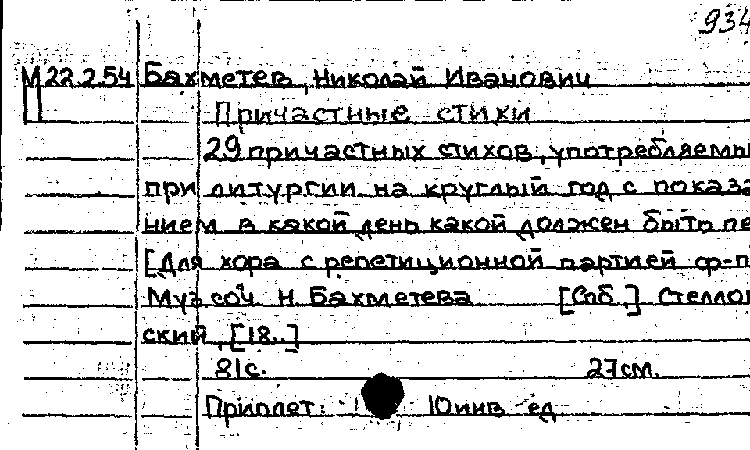 934
М 22.2.54 Бахметев, Николай Иванович
П
Причастные стихи
29 причастных стихов, употребляемы
при литургии на круглый год с показа
нием в какой день какой должен быть пе
[Для хора с репетиционной партией ф-п
Муз. соч. Н. Бахметева [Спб.] Стеллов
ский, [18..]
81с. 27см.
Приплет: 10 инв. ед